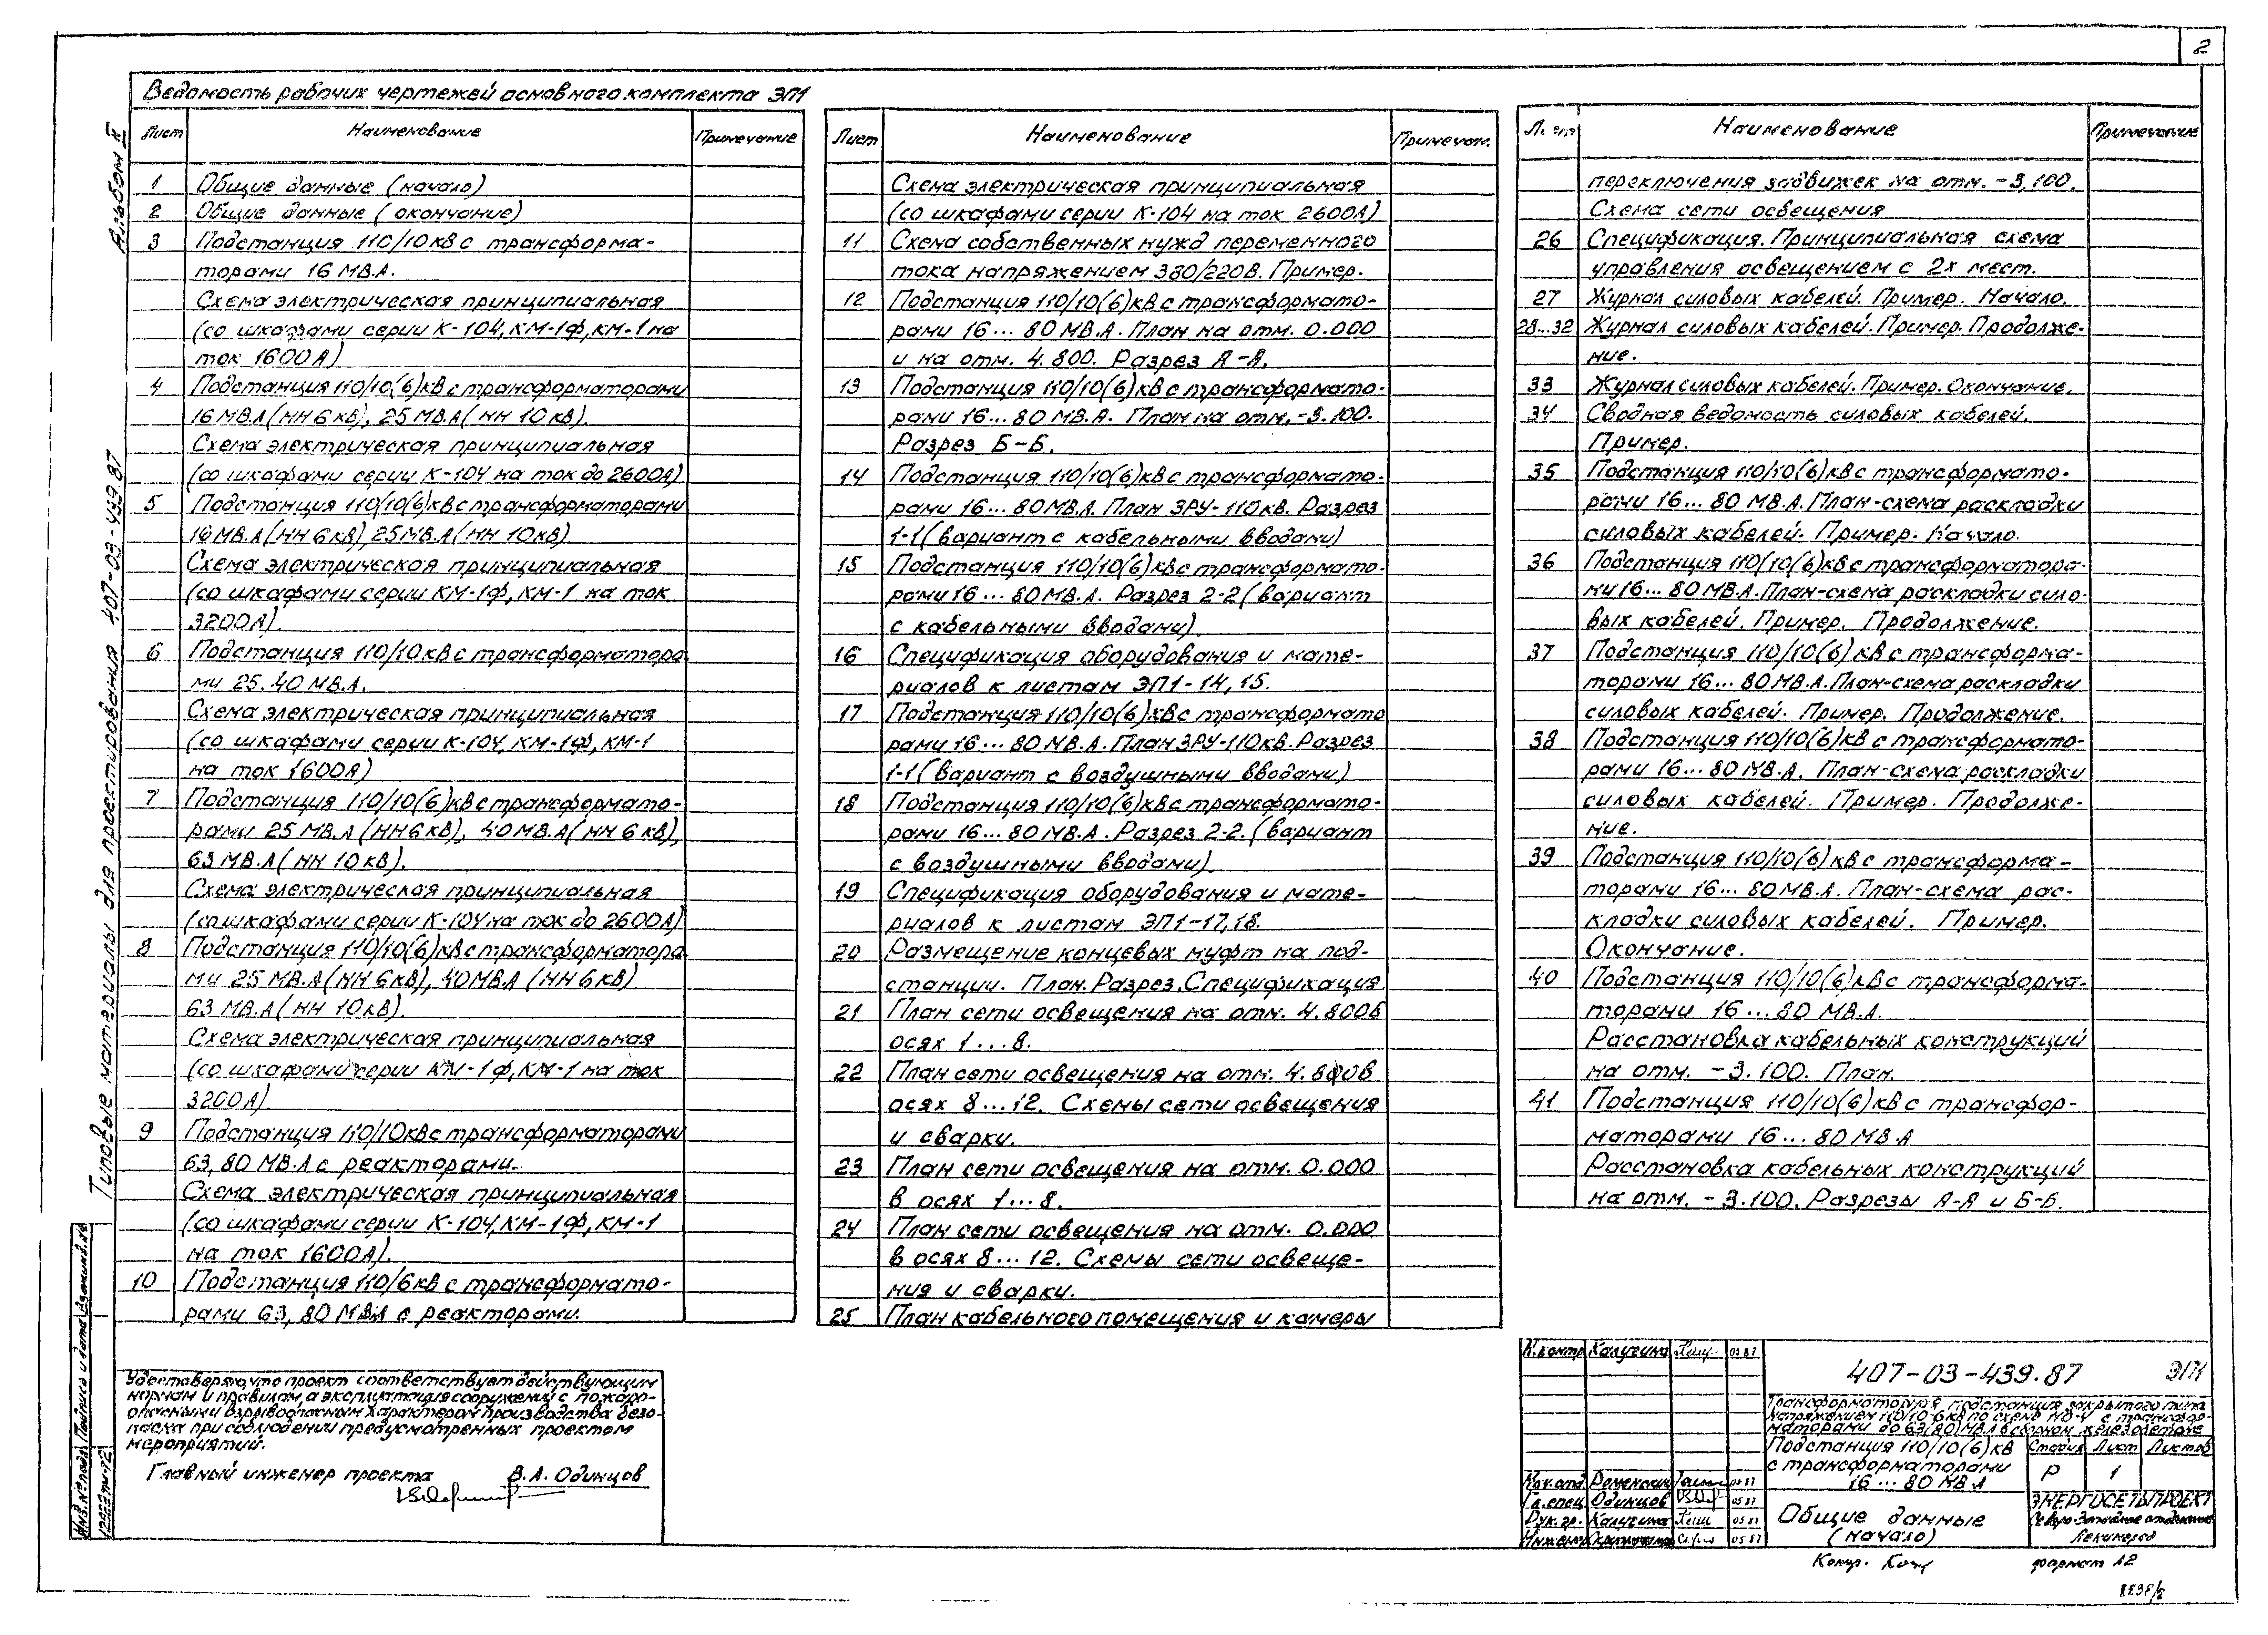 2
Ведомость рабочих чертежей основного комплекта ЭП1
Лист Наименование Примечание
1 Общие данные (начало)
2 Общие данные (окончание)
3 Подстанция 110/10кВ с трансформа-
торами 16 МВ.А.
Схема электрическая принципиальная
(со шкафами серии К-104, КМ-1Ф, КМ-1 на
ток 1600А)
4 Подстанция 110/10(6)кВ с трансформаторами
16 МВ.А (НН 6кВ), 25 МВ.А (НН 10кВ).
Схема электрическая принципиальная
(со шкафами серии К-104 на ток до 2600А)
5 Подстанция 110/10(6)кВ с трансформаторами
16 МВ.А (НН 6кВ), 25МВ.А (НН 10кВ)
Схема электрическая принципиальная
(со шкафами серии КМ-1Ф, КМ-1 на ток
3200А).
6 Подстанция 110/10кВ с трансформатора
ми 25.40 МВ.А.
Схема электрическая принципиальная
(со шкафами серии К-104, КМ-1Ф, КМ-1
на ток 1600А)
7 Подстанция 110/10(6)кВ с трансформато-
рами 25 МВ.А (НН 6кВ), 40МВ.А (НН 6кВ),
63 МВ.А (НН 10кВ).
Схема электрическая принципиальная
(со шкафами серии К-104 на ток до 2600А)
8 Подстанция 110/10(6)кВ с трансформатора
ми 25 МВ.А (НН 6кВ), 40МВ.А (НН 6кВ)
63 МВ.А (НН 10кВ).
Схема электрическая принципиальная
(со шкафами серии КМ-1Ф, КМ-1 на ток
3200А)
9 Подстанция 110/10кВ с трансформаторами
63, 80 МВ.А с реакторами.
Схема электрическая принципиальная
(со шкафами серии К-104, КМ-1Ф, КМ-1
на ток 1600А).
10 Подстанция 110/6кВ с трансформато-
рами 63, 80 МВ.А с реакторами.
Лист Наименование Примечан.
Схема электрическая принципиальная
(со шкафами серии К-104 на ток 2600А)
11 Схема собственных нужд переменного
тока напряжением 380/220В. Пример.
12 Подстанция 110/10(6)кВ с трансформато-
рами 16...80 МВ.А. План на отм. 0.000
и на отм. 4.800. Разрез А-А.
13 Подстанция 110/10(6)кВ с трансформато-
рами 16...80 МВ.А. План на отм. -3.100.
Разрез Б-Б.
14 Подстанция 110/10(6)кВ с трансформато-
рами 16...80МВ.А. План ЗРУ-110кВ. Разрез
1-1 (вариант с кабельными вводами)
15 Подстанция 110/10(6)кВ с трансформато-
рами 16...80МВ.А. Разрез 2-2 (вариант
с кабельными вводами)
16 Спецификация оборудования и мате-
риалов к листам ЭП1-14,15.
17 Подстанция 110/10(6)кВ с трансформато
рами 16...80 МВ.А. План ЗРУ-110кВ. Разрез
1-1 (вариант с воздушными вводами)
18 Подстанция 110/10(6)кВ с трансформато-
рами 16...80 МВ.А. Разрез 2-2. (вариант
с воздушными вводами)
19 Спецификация оборудования и мате-
риалов к листам ЭП1-17,18.
20 Размещение концевых муфт на под-
станции. План. Разрез. Спецификация
21 План сети освещения на отм. 4.800в
осях 1...8.
22 План сети освещения на отм. 4.800в
осях 8...12. Схемы сети освещения
и сварки.
23 План сети освещения на отм. 0.000
в осях 1...8.
24 План сети освещения на отм. 0.000
в осях 8...12. Схемы сети освеще-
ния и сварки.
25 План кабельного помещения и камеры
Лист Наименование Примечание
переключения задвижек на отм. -3.100.
Схема сети освещения
26 Спецификация. Принципиальная схема
управления освещением с 2х мест.
27 Журнал силовых кабелей. Пример. Начало.
28...32 Журнал силовых кабелей. Пример. Продолже-
ние.
33 Журнал силовых кабелей. Пример. Окончание.
34 Сводная ведомость силовых кабелей.
Пример.
35 Подстанция 110/10(6)кВ с трансформато-
рами 16...80 МВ.А. План-схема раскладки
силовых кабелей. Пример. Начало.
36 Подстанция 110/10(6)кВ с трансформатора-
ми 16...80 МВ.А. План-схема раскладки сило-
вых кабелей. Пример. Продолжение.
37 Подстанция 110/10(6)кВ с трансформа-
торами 16...80МВ.А. План-схема раскладки
силовых кабелей. Пример. Продолжение.
38 Подстанция 110/10(6)кВ с трансформато-
рами 16...80 МВ.А. План-схема раскладки
силовых кабелей. Пример. Продолже-
ние.
39 Подстанция 110/10(6)кВ с трансформа-
торами 16...80МВ.А. План-схема рас-
кладки силовых кабелей. Пример.
Окончание.
40 Подстанция 110/10(6)кВ с трансформа-
торами 16...80 МВ.А.
Расстановка кабельных конструкций
на отм. -3.100. План.
41 Подстанция 110/10(6)кВ с трансфор-
маторами 16...80МВ.А
Расстановка кабельных конструкций
на отм. -3.100. Разрезы А-А и Б-Б.
Типовые материалы для проектирования 407-03-439.87 Альбом II
Инв.№ подл. Подпись и дата Взам.инв.№
Удостоверяю, что проект соответствует действующим
нормам и правилам, а эксплуатация сооружений с пожаро-
опасным и взрывоопасным характером производства безо-
пасна при соблюдении предусмотренных проектом
мероприятий.
Главный инженер проекта В.А. Одинцов
Н.контр Калугина 05.87
407-03-439.87 ЭП1
Трансформаторная подстанция закрытого типа
напряжением 110/10-6кВ по схеме 110-4 с трансфор-
маторами до 63(80)МВ.А в сборном железобетоне
Подстанция 110/10(6)кВ
с трансформаторами
16...80 МВ.А
Стадия Лист Листов
Р 1
Нач.отд. Роменский 05.87
Гл.спец. Одинцов 05.87
Рук.гр. Калугина 05.87
Инженер 05.87
Общие данные
(начало)
ЭНЕРГОСЕТЬПРОЕКТ
Северо-Западное отделение
Ленинград
Копир.
формат А2